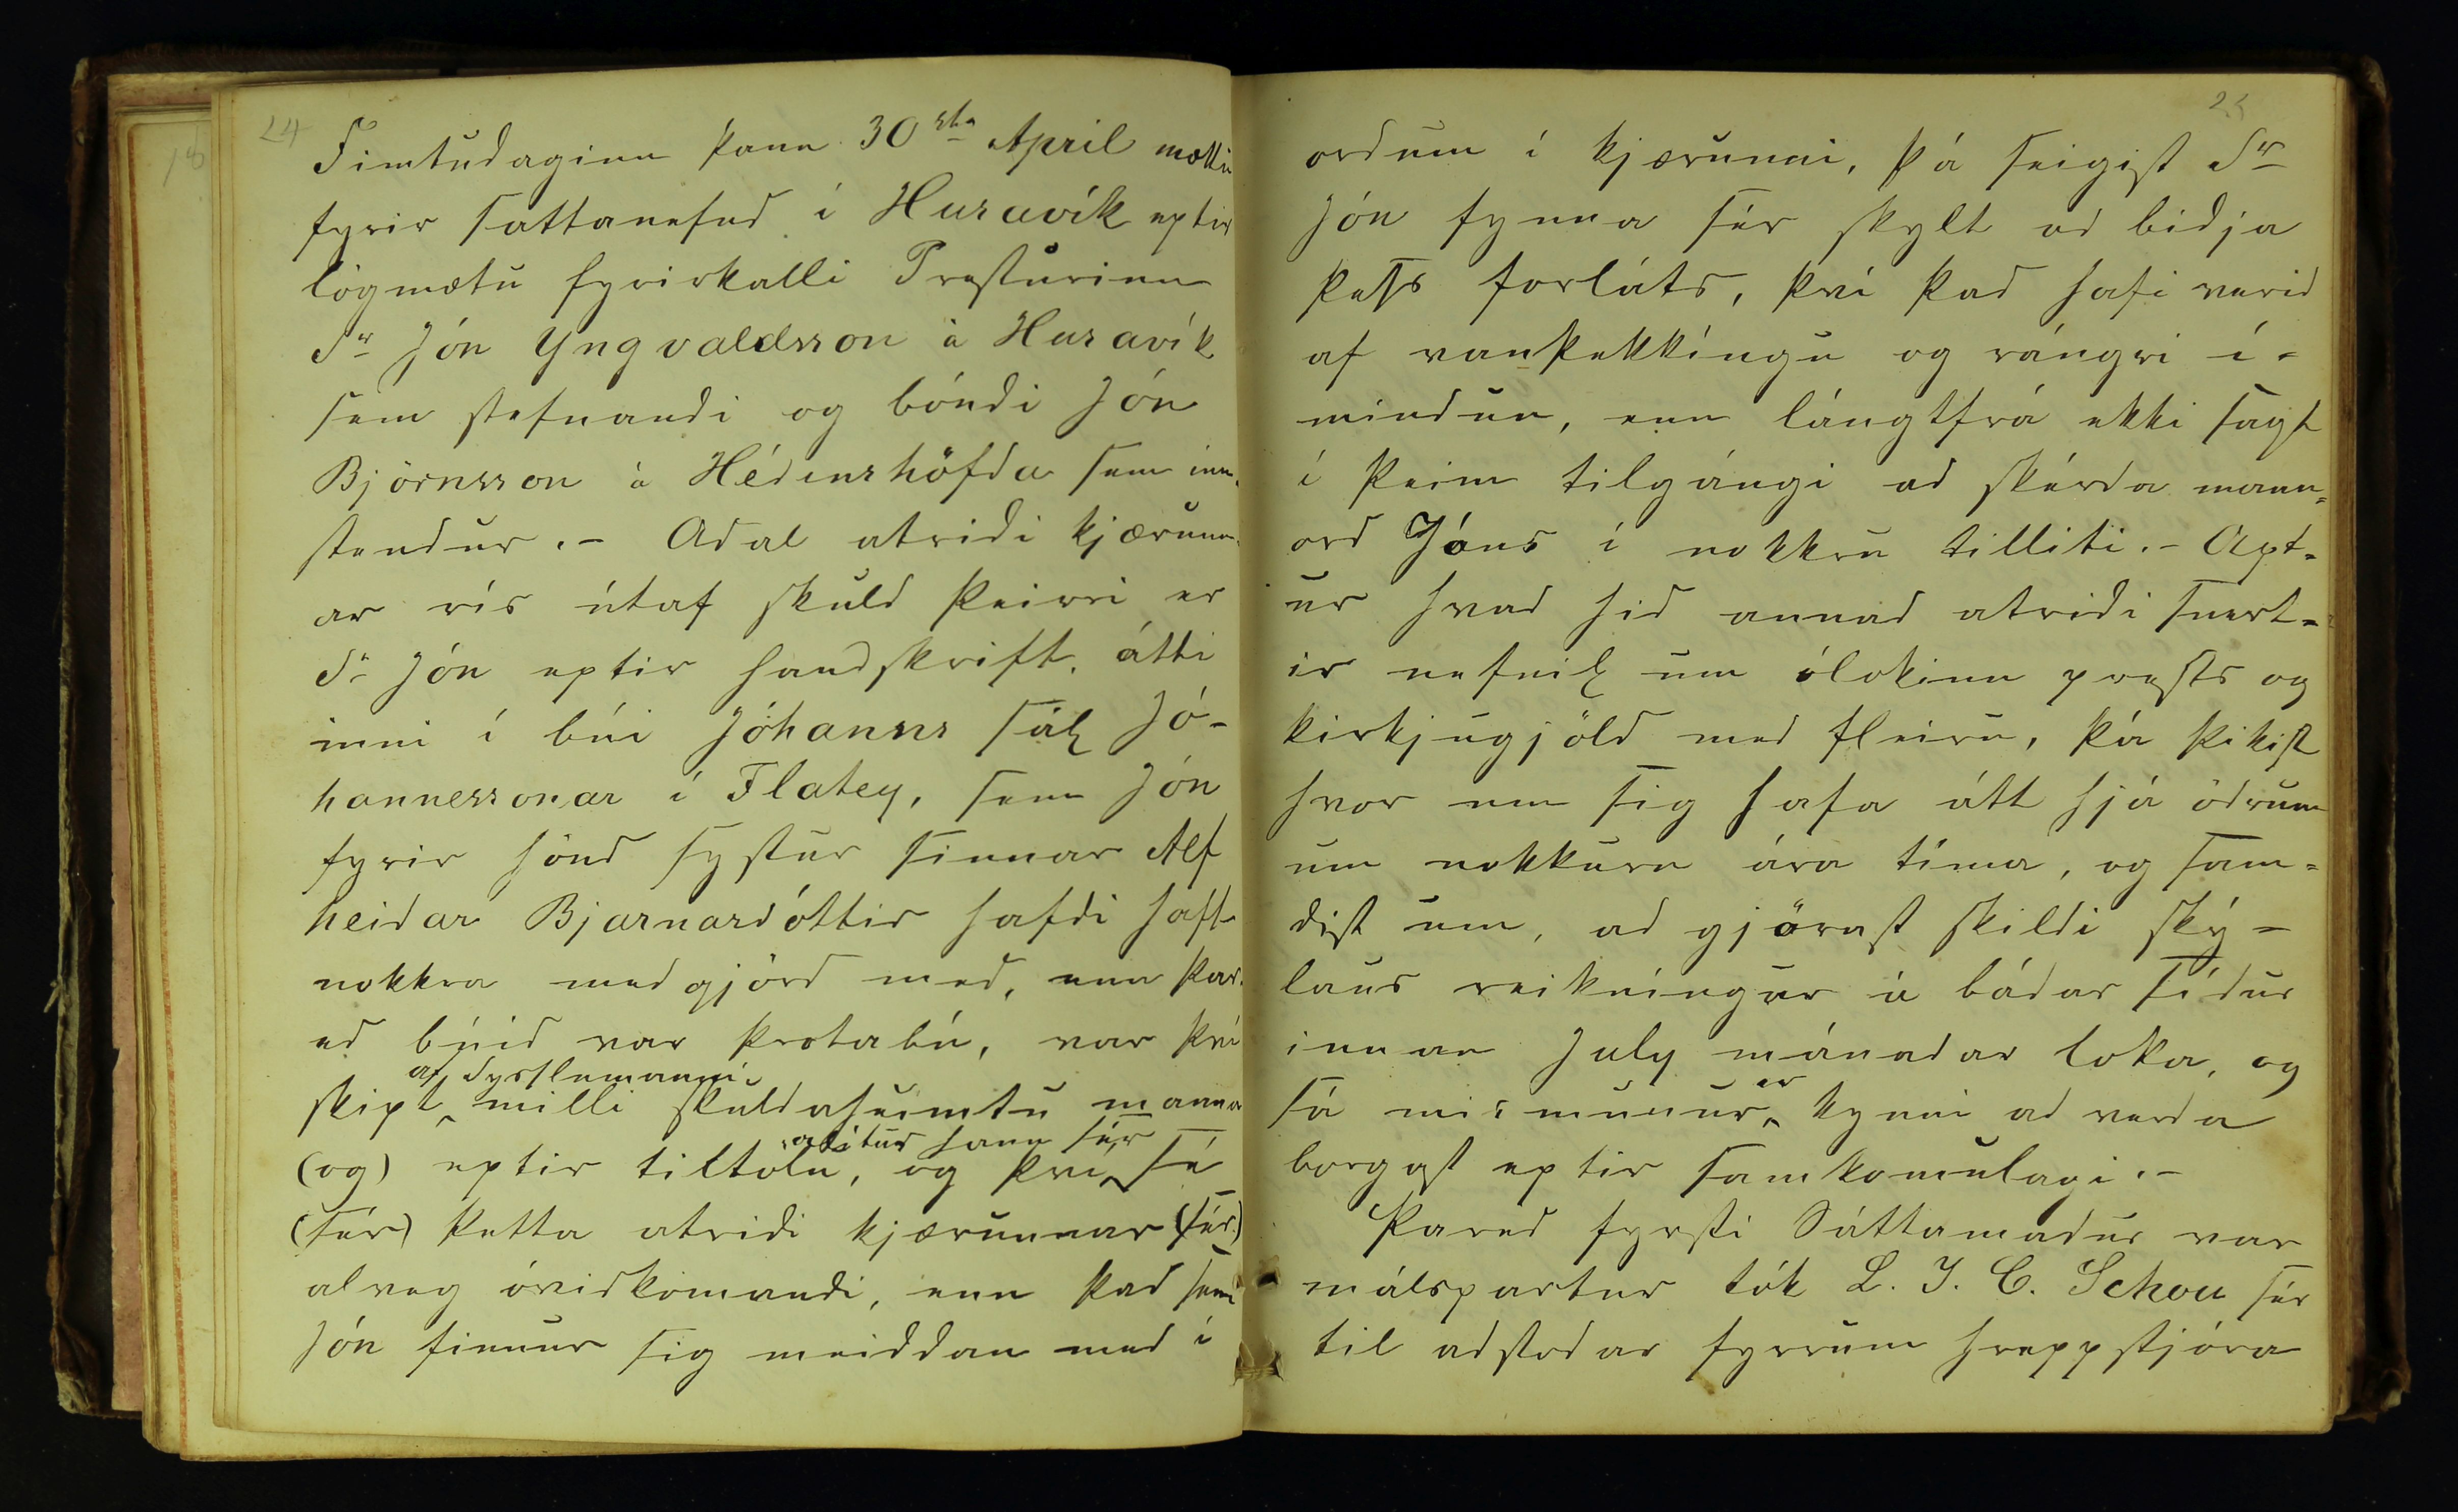 24
Fimtudaginn þann 30sta April mættu
fyrir sattanefnd í Husavík eptir
lögmætu fyrirkalli Presturinn
Sr Jón Yngvaldsson á Husavík
sem stefnandi og bóndi Jón
Björnsson á Hédinshöfda sem inn-
stendur. – Adal atridi kjærunn-
ar rís útaf skuld þeirri er
Sr Jón eptir handskrift átti
inni í búi Jóhanns sál Jó-
hannessonar í Flatey, sem Jón
fyrir hönd systur sinnar Alf
heidar Bjarnardóttir hafdi haft
nokkra medgjörd med, enn þar
ed búid var þrotabú, var því
af Sysslumanni
skipt milli skuldaheimtu manna
álítur hann sér
(og) eptir tiltölu, og því sé
(sér) þetta atridi kjærunnar (sér)
alveg óvidkomandi, enn það sem
Jón finnur sig meiddan med í
25
ordum í kjærunni, þá seigist Sr
Jón fynna sér skylt ad bidja
þess forláts, því þad hafi verid
af vanþekkíngu og rángri í-
mindun, enn lángtfrá ekki sagt
í þeim tilgángi ad skérda mann-
ord Jóns í nokkru tilliti. – Apt-
ur hvad hid annad atridi snert-
ir nefnil um ólokinn prests og
kirkjugjöld med fleiru, þá þikist
hvor um sig hafa átt hjá ödrum
um nokkurn ára tíma, og sam-
dist um, ad gjörast skildi ský-
laus reikníngur á bádar sídur
innan July mánadar loka, og
er
sá mismunur kynni ad verda
borgast eptir samkomulagi. –
Pared fyrsti Sáttamadur var
málspartur tók L. J. C. Schou sér
til adstodar fyrrum hreppstjóra